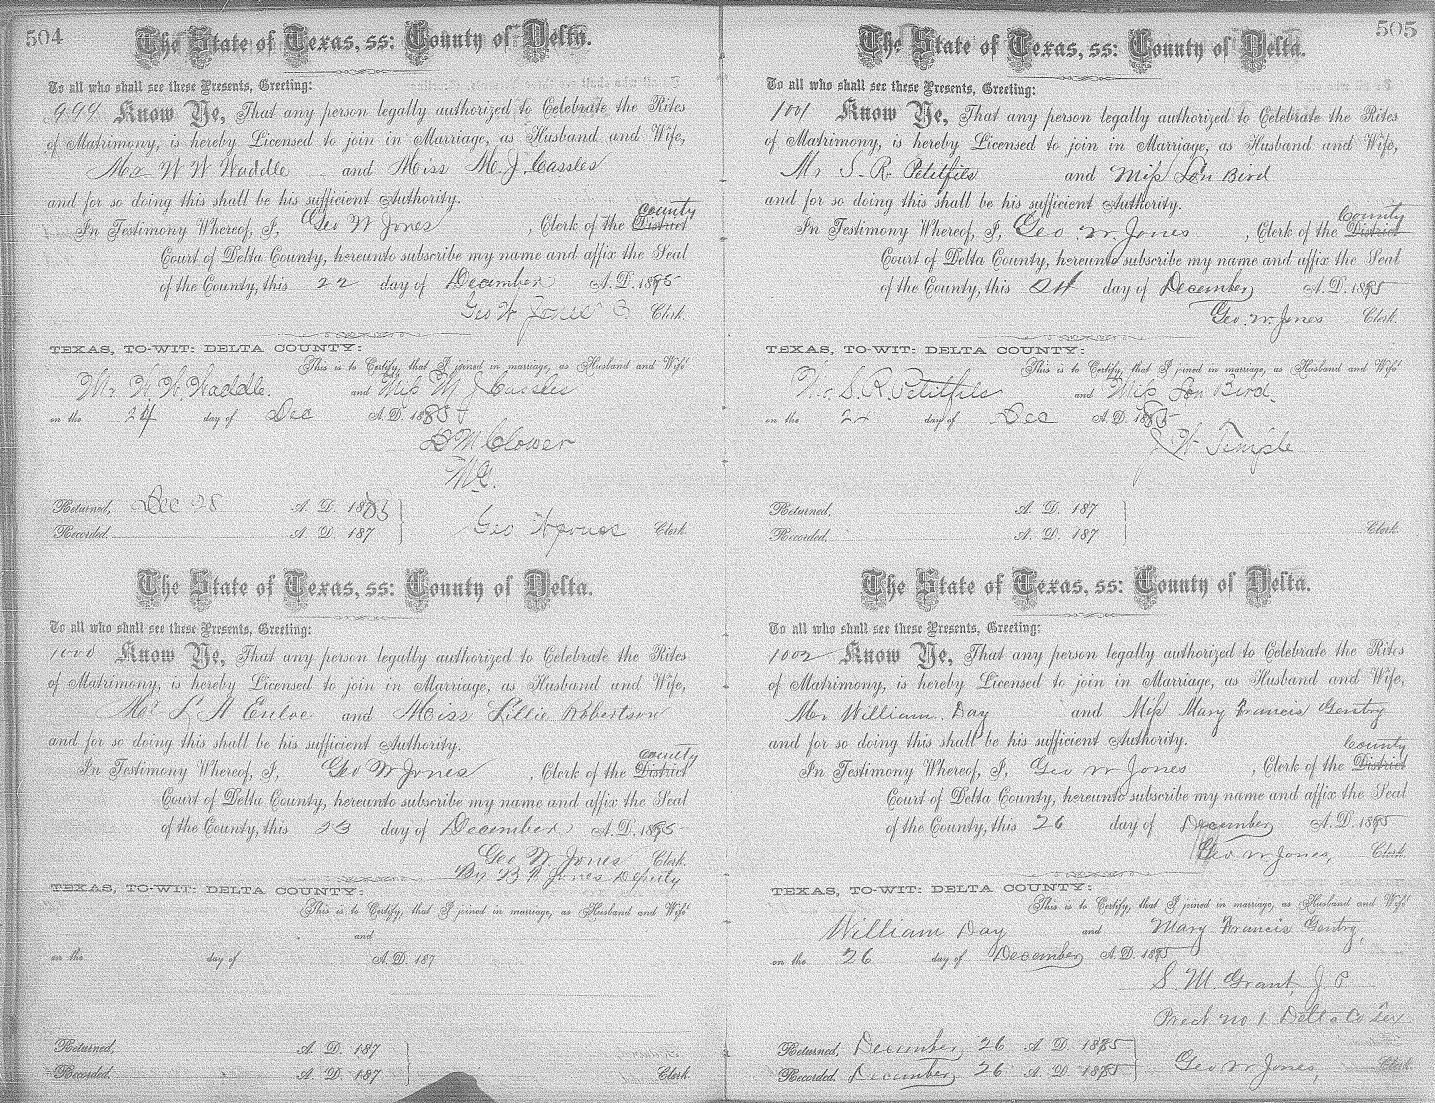 504
The State of Texas, ss: County of Delta.
To all who shall see these Presents, Greeting:
999 Know Ye, That any person legally authorized to Celebrate the Rites
of Matrimony, is hereby Licensed to join in Marriage, as Husband and Wife,
Mr W W Waddle and Miss M. J. Cassles
and for so doing this shall be his sufficient Authority.
county
In Testimony Whereof, I, Geo W Jones, Clerk of the District
Court of Delta County, hereunto subscribe my name and affix the Seal
of the County, this 22 day of December A. D. 1885
Geo W Jones Clerk.
TEXAS, TO-WIT: DELTA COUNTY:
This is to Certify, that I joined in marriage, as Husband and Wife
Mr W. W. Waddle. and Miss M J Cassles
on the 24 day of Dec A. D. 1885
Clower
M.G.
Returned, Dec 28 A. D. 1885
Recorded, A. D. 187 Geo W Jones Clerk
The State of Texas, ss: County of Delta.
To all who shall see these Presents, Greeting:
1000 Know Ye, That any person legally authorized to Celebrate the Rites
of Matrimony, is hereby Licensed to join in Marriage, as Husband and Wife,
L A Enloe and Miss Lillie Robertson
and for so doing this shall be his sufficient Authority.
county
In Testimony Whereof, I, Geo W Jones, Clerk of the District
Court of Delta County, hereunto subscribe my name and affix the Seal
of the County, this 23 day of December A. D. 1885
Geo W. Jones Clerk.
By Jones Deputy
TEXAS, TO-WIT: DELTA COUNTY:
This is to Certify, that I joined in marriage, as Husband and Wife
and
on the day of A. D. 187
Returned, A. D. 187
Recorded, A. D. 187 Clerk.
505
The State of Texas, ss: County of Delta.
To all who shall see these Presents, Greeting:
1001 Know Ye, That any person legally authorized to Celebrate the Rites
of Matrimony, is hereby Licensed to join in Marriage, as Husband and Wife,
Mr S. R. Petitfils and Miss Lou Bird
and for so doing this shall be his sufficient Authority.
County
In Testimony Whereof, I, Geo. W. Jones, Clerk of the District
Court of Delta County, hereunto subscribe my name and affix the Seal
of the County, this 24 day of December A. D. 1885
Geo. W. Jones Clerk.
TEXAS, TO-WIT: DELTA COUNTY:
This is to Certify, that I joined in marriage, as Husband and Wife
Mr. S. R. Petitfils and Miss Lou Bird.
on the day of Dec A. D. 1885
J W Temple
Returned, A. D. 187
Recorded, A. D. 187 Clerk.
The State of Texas, ss: County of Delta.
To all who shall see these Presents, Greeting:
1002 Know Ye, That any person legally authorized to Celebrate the Rites
of Matrimony, is hereby Licensed to join in Marriage, as Husband and Wife,
Mr William Day and Miss Mary Francis Gentry
and for so doing this shall be his sufficient Authority.
County
In Testimony Whereof, I, Geo W Jones, Clerk of the District
Court of Delta County, hereunto subscribe my name and affix the Seal
of the County, this 26 day of December A. D. 1885
Geo W Jones, Clerk.
TEXAS, TO-WIT: DELTA COUNTY:
This is to Certify, that I joined in marriage, as Husband and Wife
William Day and Mary Francis Gentry,
on the 26 day of December A. D. 1885
S. M. Grant, J P
Prect no 1 Delta Co Tex
Returned, December 26 A. D 1885
Recorded, December 26 A. D 1885 Geo W Jones, Clerk.